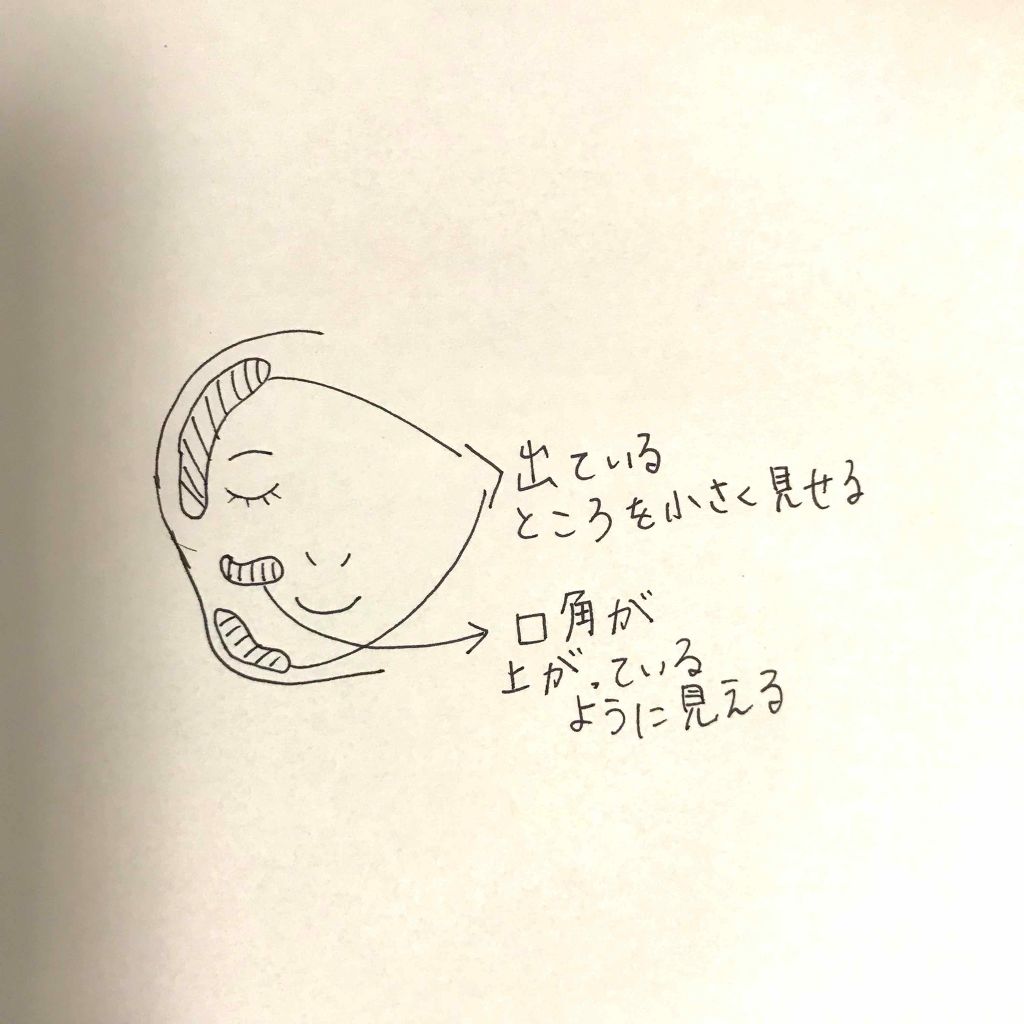 出ている
ところを小さく見せる
口角が
上がっている
ように見える